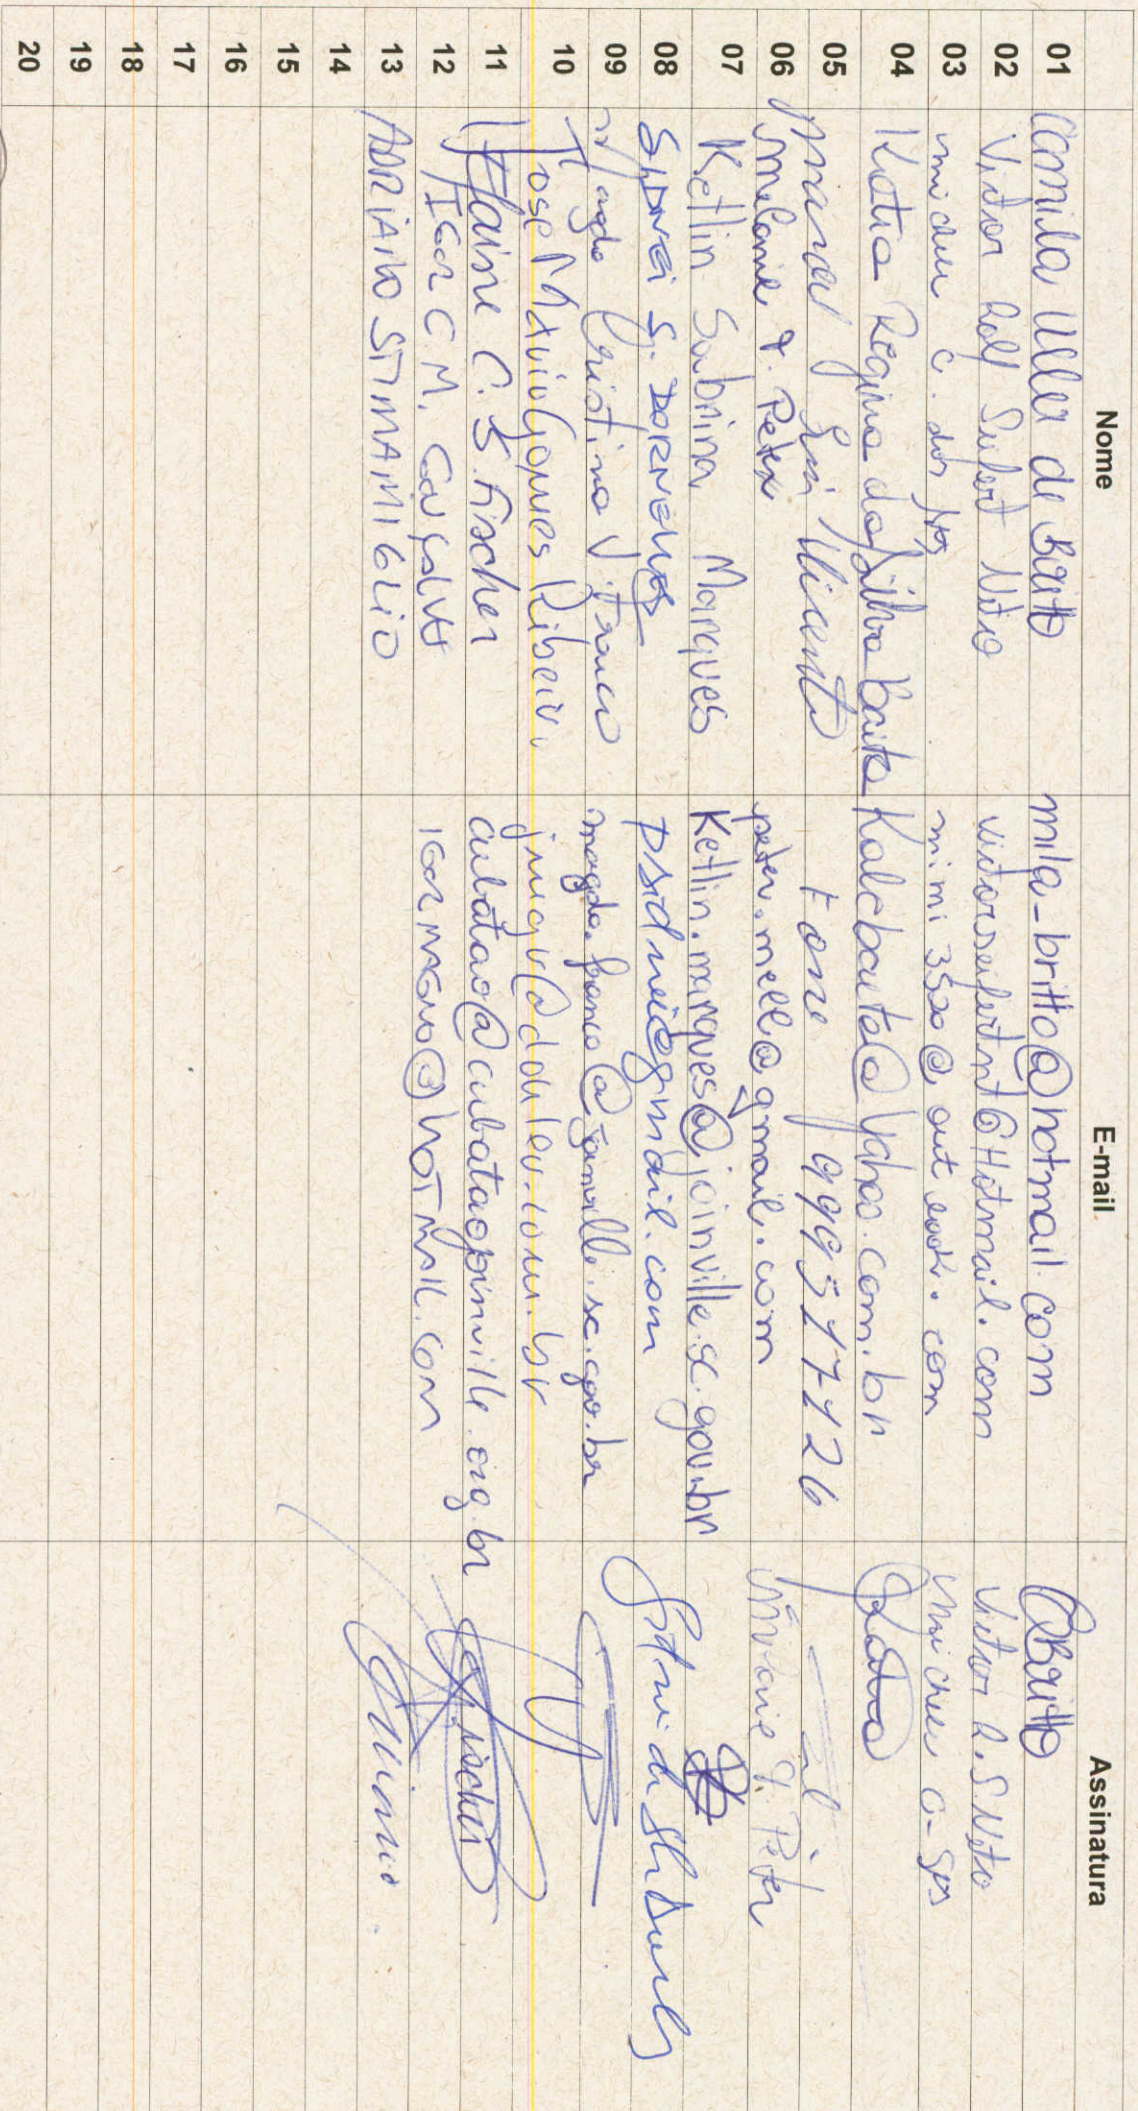 Nome E-mail Assinatura
01 Camila Uller de Britto mila-britto@hotmail.com CBritto
02 Victor Rolf Seifert Neto victorseifertnt@Hotmail.com Victor R.S.Neto
03 C. dos mimi3520@outlook.com
04 Katia Regina da Silva Baita Kalcbaita@yahoo.com.br Katia
05 Manoel Luiz Vicente Fone 99951726
06 Melanie Y. Peter peter.mell@gmail.com Melanie Y. Peter
07 Ketlin Sabrina Marques Ketlin.marques@joinville.sc.gov.br
08 SIDNEI S. DORNELLES Dsidnei@gmail.com
09 Magda Cristina V Franco magda.franco@joinville.sc.gov.br
10 Jose Mavio Gomes Ribeiro
11 Elaine C. S. Fischer cubatao@cubataojoinville.org.br Fischer
12 IGOR C M. GONÇALVES @HOTMAIL.COM
13 ADRIANO STIMAMIGLIO
14
15
16
17
18
19
20